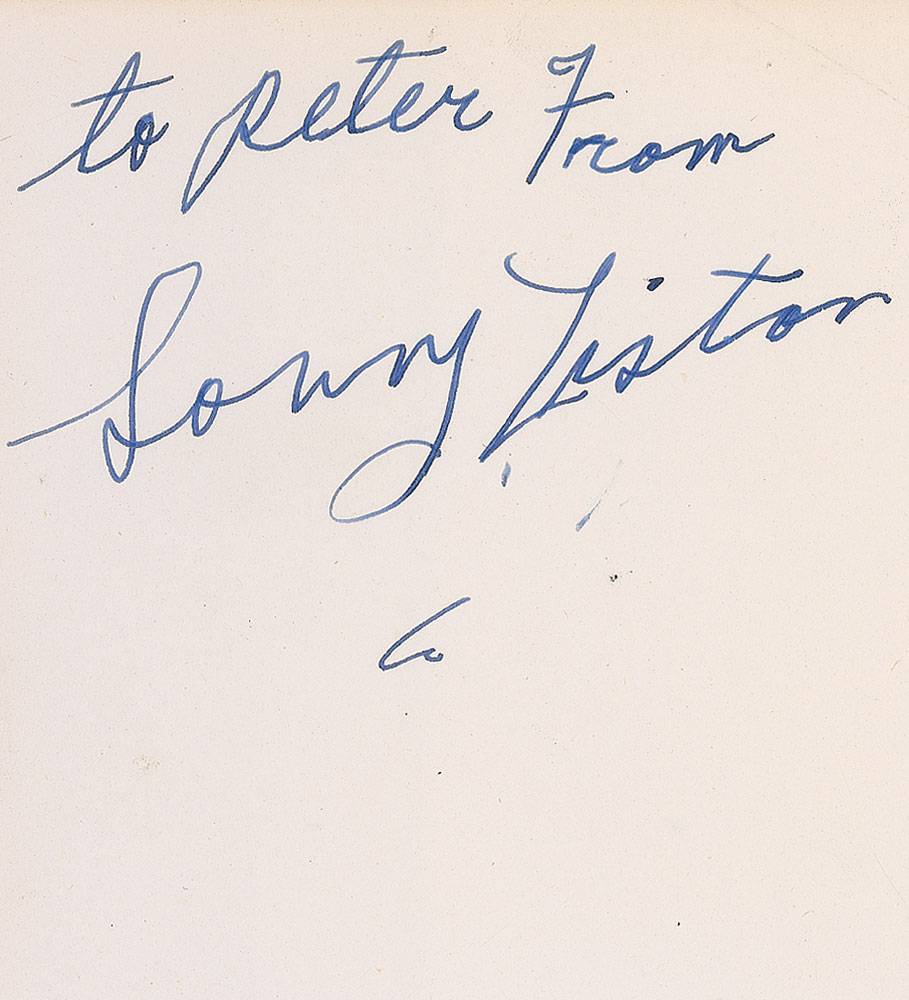 to Peter From
Sonny Liston